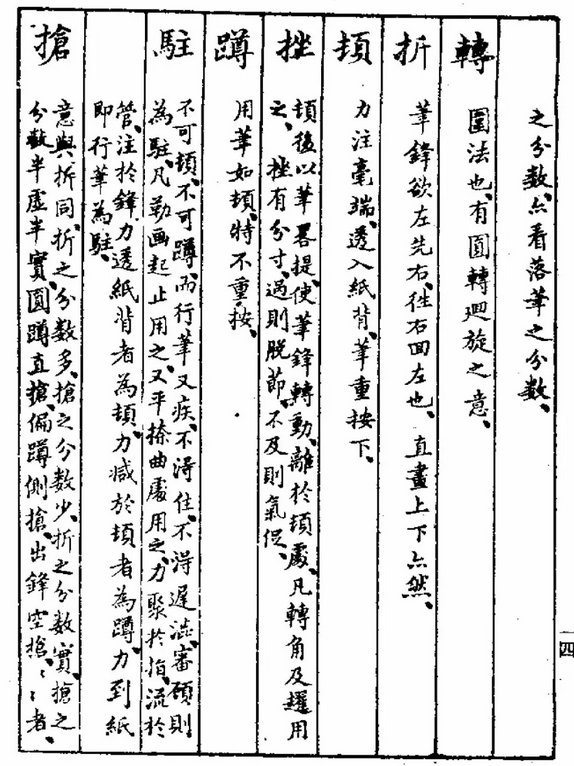 之分數、亦看落筆之分數、
轉 圜法也、有圓轉迴旋之意、
折 筆鋒欲左先右、往右回左也、直畫上下亦然、
頓 力注毫端、透入紙背、筆重按下、
挫 頓後以筆畧提、使筆鋒轉動、離於頓處、凡轉角及趯用
之、挫有分寸、過則脫節、不及則氣促、
蹲 用筆如頓、特不重按、
駐 不可頓、不可蹲、而行筆又疾、不得住、不得遲澁、審頓則
為駐、凡勒画起止用之、又平捺曲處用之、力聚於指、流於
管、注於鋒、力透紙背者為頓、力減於頓者為蹲、力到紙
即行筆為駐、
搶 意與折同、折之分數多、搶之分數少、折之分數實、搶之
分數半虛半實、圓蹲直搶、偏蹲側搶、出鋒空搶、ミ者、
四